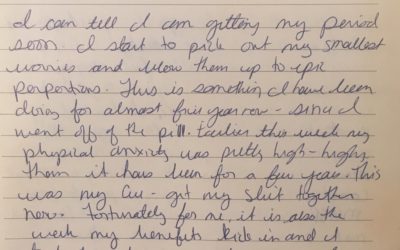 I can tell I am getting my period
soon. I start to pick out my smallest
worries and blow them up to epic
perportions. This is something I have been
doing for almost five year now - since I
went off of the pill. Earlier this week my
physical anxiety was pretty high - higher
then it has been for a few years. This
was my cue - get my shit together
now. Fortunately for me, it is also the
week my benefits kick in and I